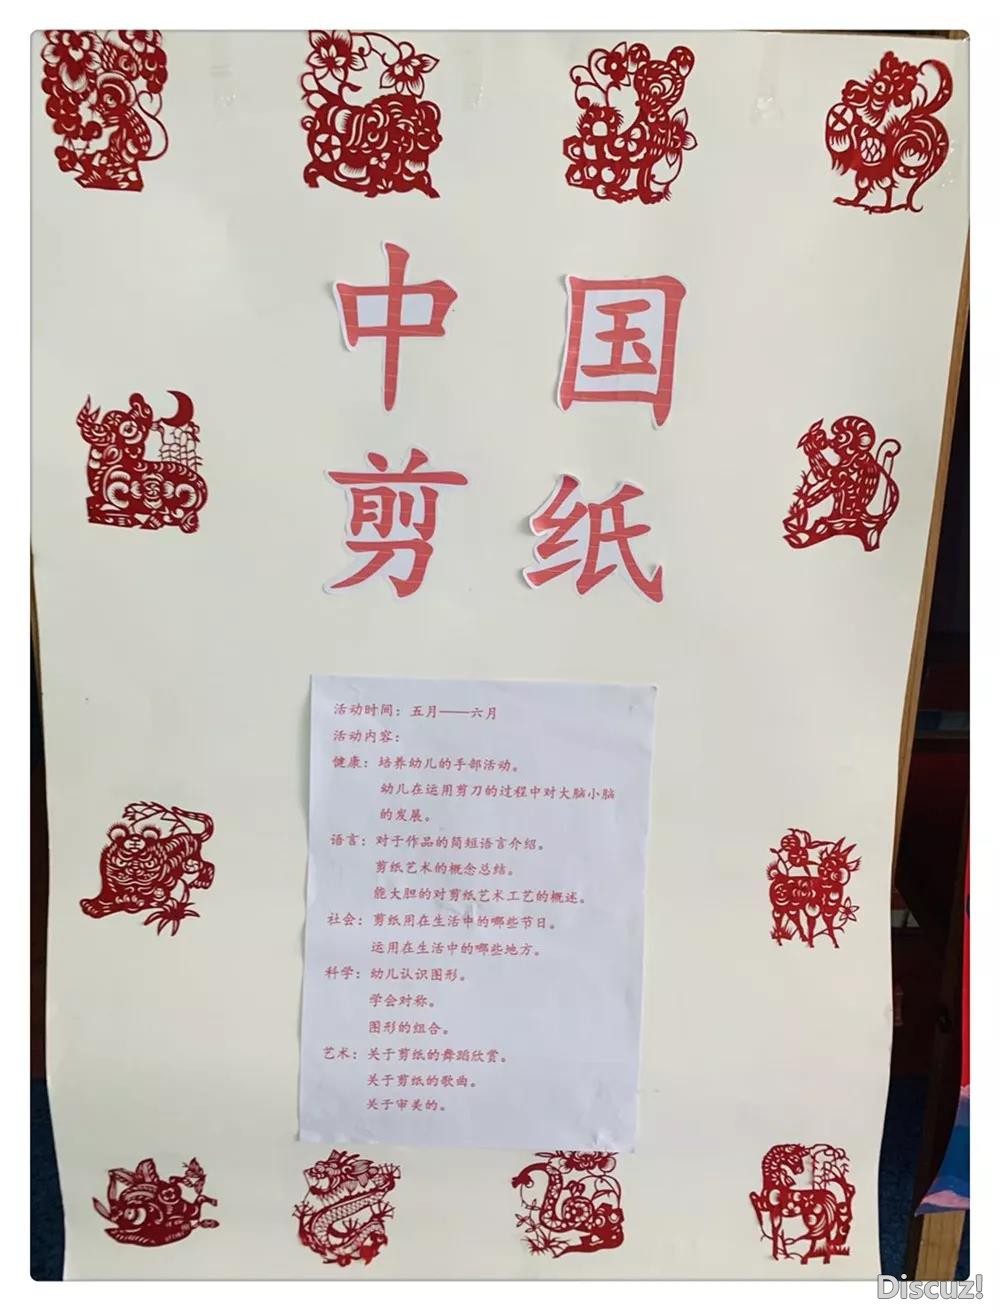 中国
剪纸
活动时间：五月——六月
活动内容：
健康：培养幼儿的手部活动。
幼儿在运用剪刀的过程中对大脑小脑
的发展。
语言：对于作品的简短语言介绍。
剪纸艺术的概念总结。
能大胆的对剪纸艺术工艺的概述。
社会：剪纸用在生活中的哪些节日。
运用在生活中的哪些地方。
科学：幼儿认识图形。
学会对称。
图形的组合。
艺术：关于剪纸的舞蹈欣赏。
关于剪纸的歌曲。
关于审美的。
Discuz!